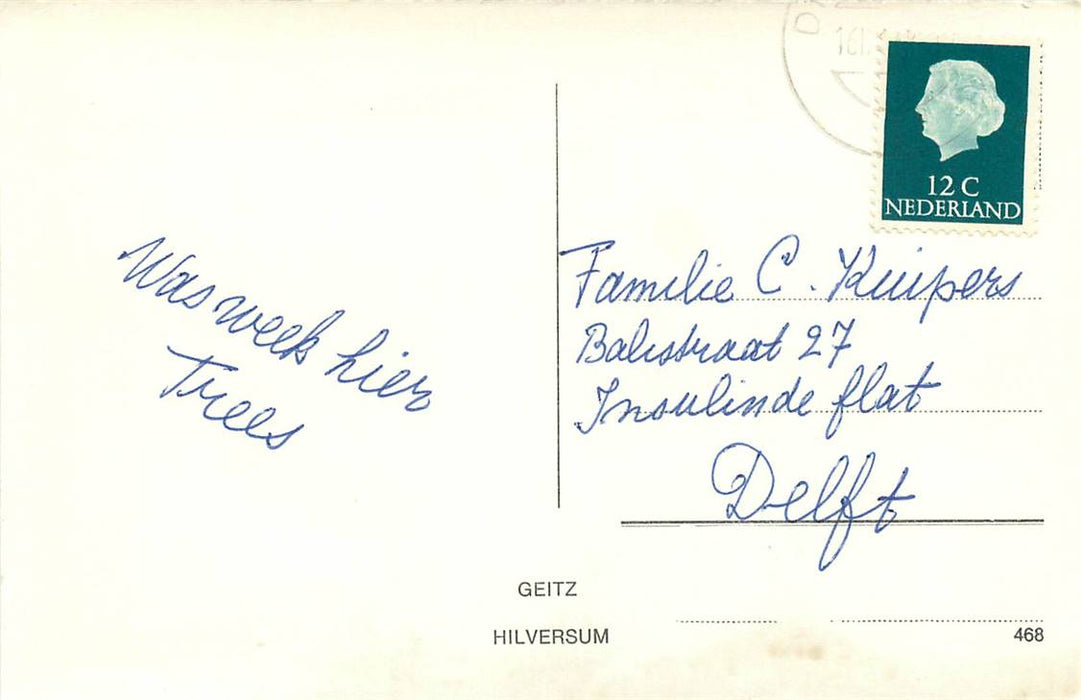 12 C
NEDERLAND
Was week hier
Trees
Familie C. Kuipers
Balistraat 27
Insulinde flat
Delft
GEITZ
HILVERSUM
468